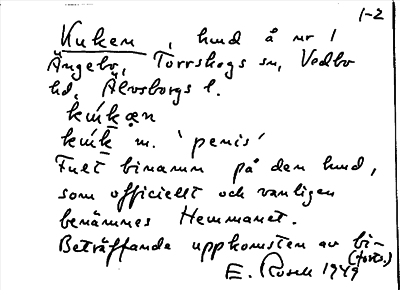 1-2
Kuken, hund å nr 1
Ängebo, Torrskogs sn, Vedbo
hd, Älvsborgs l.
kúkən
kúk m. 'penis'
Fult binamn på den hund,
som officiellt och vanligen
benämnes Hemmanet.
Beträffande uppkomsten av bi-
(forts.)
E. Rosell 1949